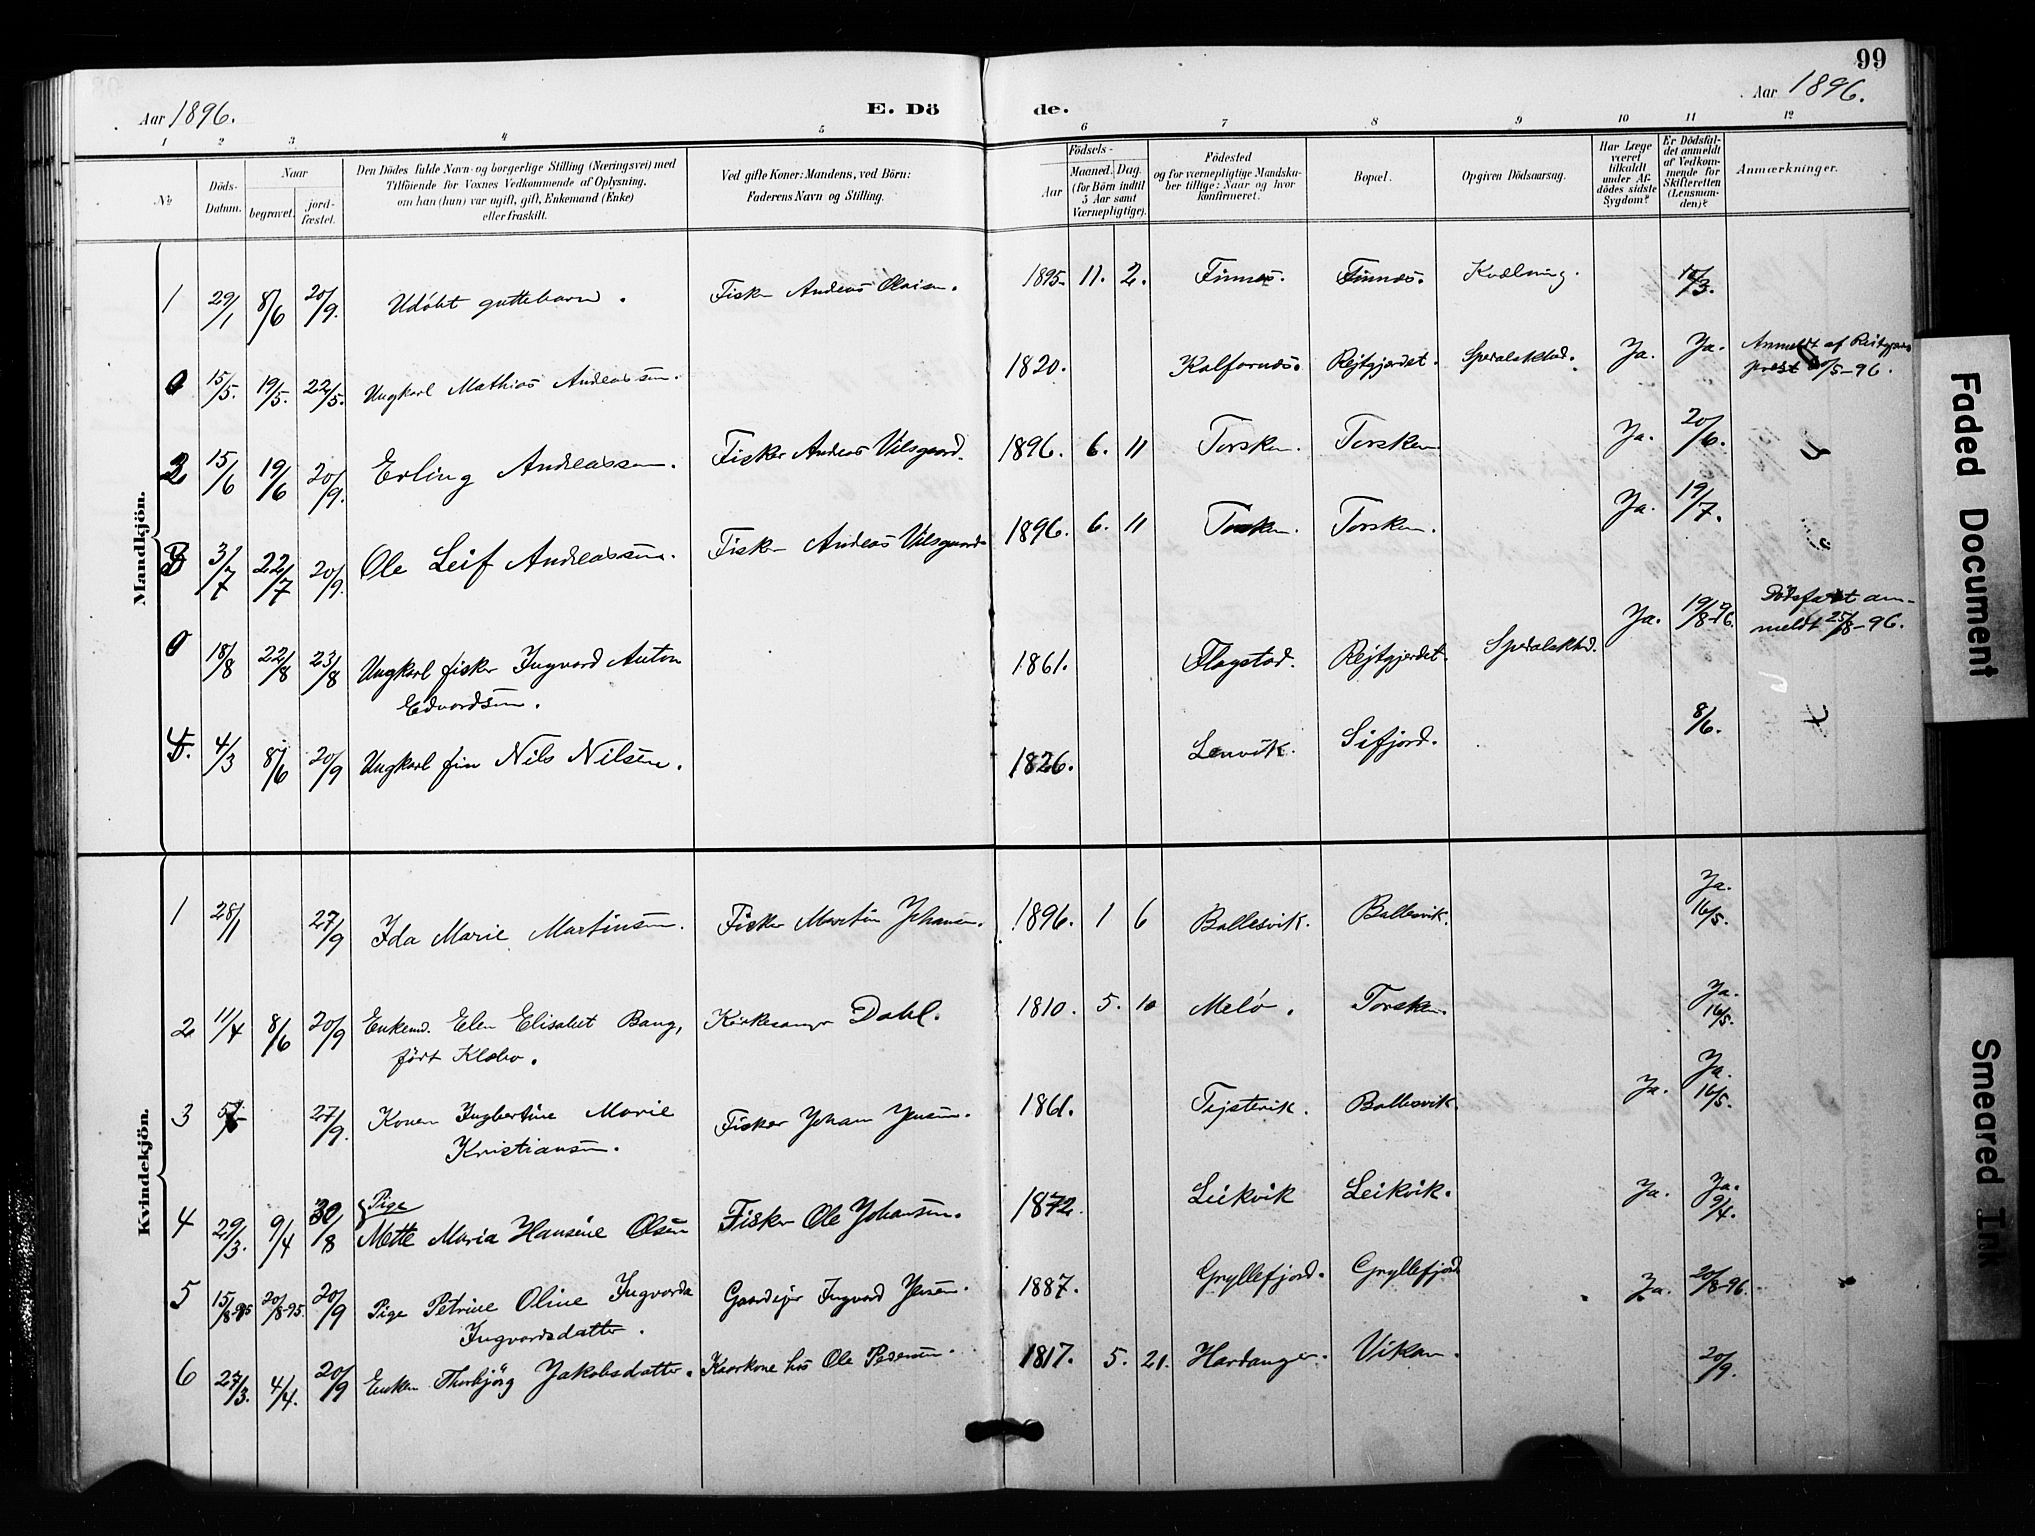 99
Aar 1896.
E. Dö de.
Aar 1896.
1 2 3 4 5 6 7 8 9 10 11 12
No
Döds-
Datum.
Naar
begravet.
jord-
fæstet.
Den Dödes fulde Navn og borgerlige Stilling (Næringsvei) med
Tilföiende for Voxnes Vedkommende af Oplysning,
om han (hun) var ugift, gift, Enkemand (Enke)
eller fraskilt.
Ved gifte Koner: Mandens, ved Börn:
Faderens Navn og Stilling.
Födsels-
Aar
Maaned. Dag
(for Börn indtil
5 Aar samt
Værnepligtige).
Födested
og for værnepligtige Mandska-
ber tillige: Naar og hvor
konfirmeret.
Bopæl.
Opgiven Dödsaarsag.
Har Læge
været
tilkaldt
under Af-
dödes sidste
Sygdom?
Er Dödsfal-
det anmeldt
af Vedkom-
mende for
Skifteretten
(Lensman-
den)?
Anmærkninger.
Mandkjön.
1 29/1 8/6 20/9. Udöbt guttebarn. Fisker Andreas Olaisen. 1895. 11. 2. Finnæs. Finnæs. Kvælning. /3.
0 15/5. 19/5. 22/5. Ungkarl Mathias Andreassen. 1820. Kalfarnæs. Rejtgjerdet. Spedalskhed. Ja. Ja. Anmeldt af Rejtgjerd
prest 20/5-96.
2 15/6 19/6 20/9. Erling Andreassen. Fisker Andreas Valsgaard. 1896. 6. 11 Torsken. Torsken Ja. 20/6.
3 3/7 22/7 20/9. Ole Leif Andreassen. Fisker Andreas Valsgaard 1896. 6. 11 Torsken. Torsken. Ja. 19/7.
0 18/8 22/8 23/8 Ungkarl fisker Ingvard Anton
Edvardsen. 1861. Flagstad. Rejtgjerdet. Spedalskhed. Ja. 19/8-96. Dödsfaldet an-
meldt 25/8-96.
4. 4/3 8/6 20/9 Ungkarl fin Nils Nilsen. 1826. Lenvik. Sifjord. 8/6.
Kvindekjön.
1 28/1 27/9 Ida Marie Martinsen. Fisker Martin Johansen. 1896. 1 6 Ballesvik. Ballesvik. Ja.
16/5.
2 11/4 8/6 20/9 Enkemd. Elen Elisabet Bang,
födt Klæbo. Kirkesanger Dahl. 1810. 5. 10 Melö. Torsken. Ja.
16/5.
3 27/9. Konen Ingbertine Marie
Kristiansen. Fisker Johan Jensen. 1861. Tejstevik. Ballesvik. Ja. Ja.
16/5.
4 29/3. 9/4 30/8 Pige
Mette Maria Hansine Olsen Fisker Ole Johansen. 1872. Leikvik Leikvik. Ja. Ja.
9/4.
5 15/8-95 20/8-95. 20/9 Pige Petrine Oline Ingvarda
Ingvardsdatter. Gaardejer Ingvard Jensen. 1887. Gryllefjord. Gryllefjord Ja. 20/8-96.
6 27/3. 4/4. 20/9 Enken Thorbjörg Jakobsdatter. Kaarkone hos Ole Pedersen. 1817. 5. 21. Hardanger. Vikan. 20/9.
Faded Document
Smeared Ink